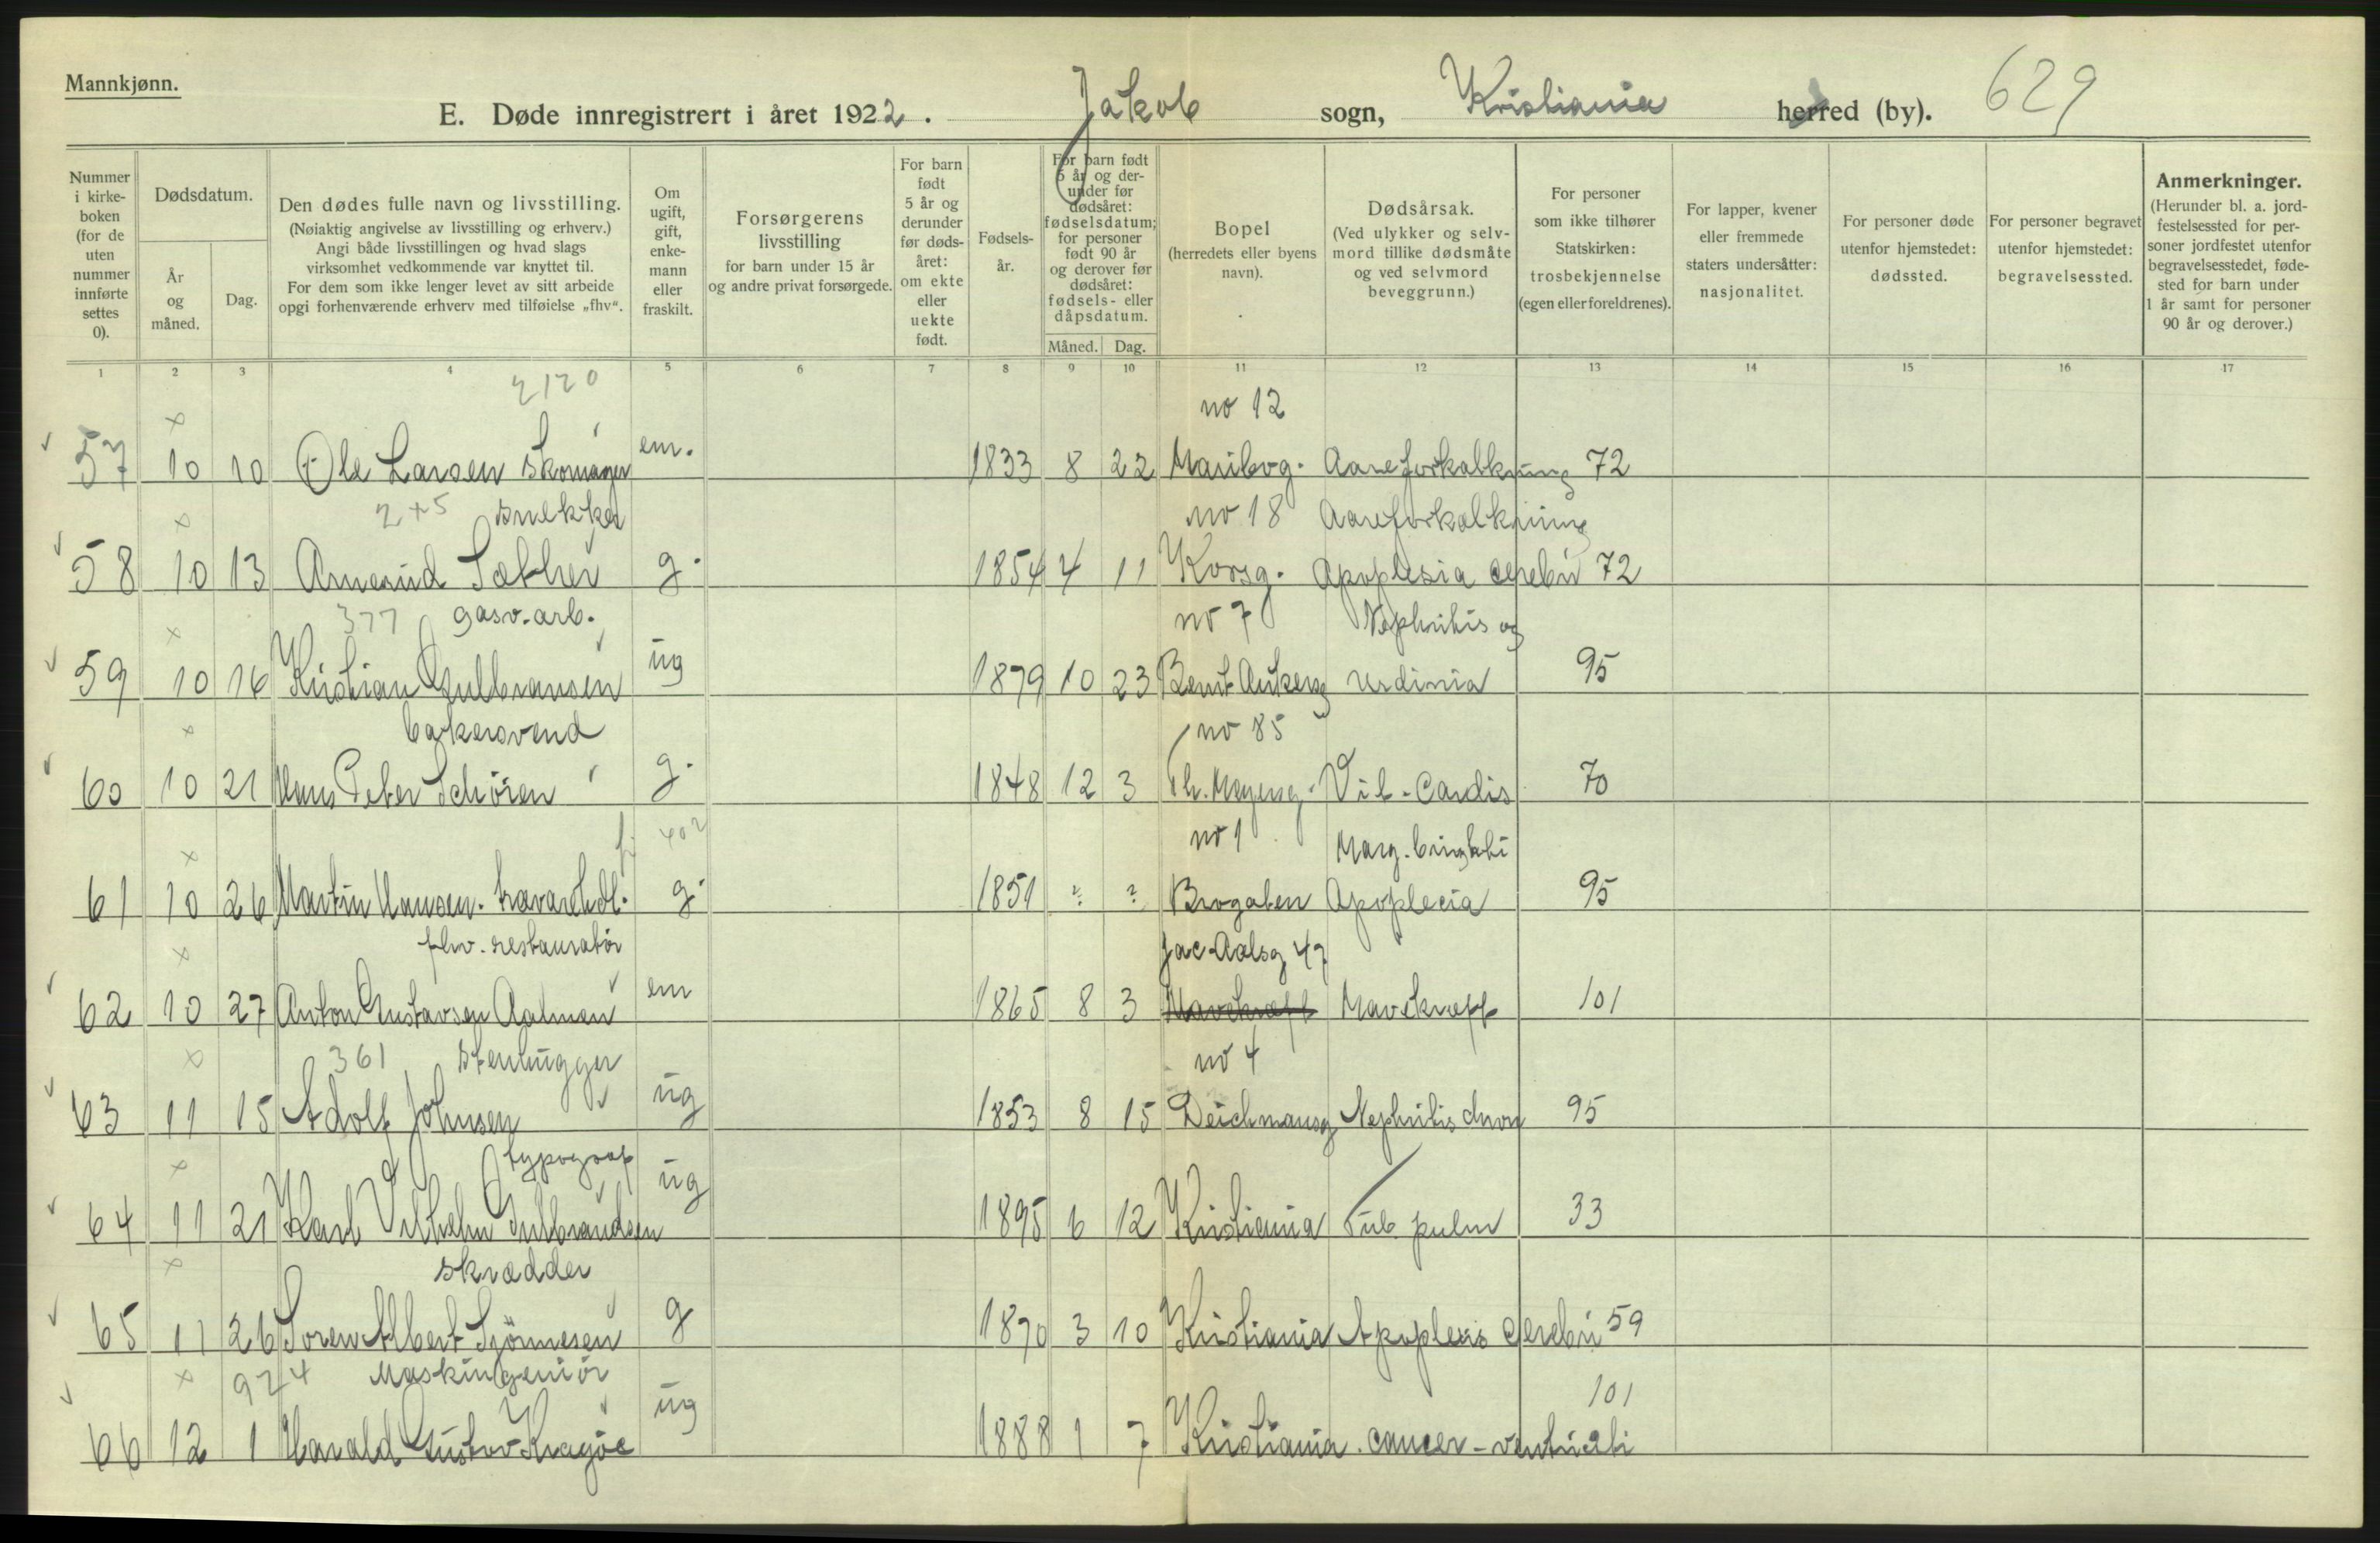 Mannkjønn.
E. Døde innregistrert i året 1922. Jakob sogn, Kristiania herred (by). 629
Nummer i kirkeboken (for de uten nummer innførte settes 0).
Dødsdatum.
År og måned.
Dag.
Den dødes fulle navn og livsstilling.
(Nøiaktig angivelse av livsstilling og erhverv.)
Angi både livsstillingen og hvad slags
virksomhet vedkommende var knyttet til.
For dem som ikke lenger levet av sitt arbeide
opgi forhenværende erhverv med tilføielse „fhv“.
Om ugift, gift, enkemann eller fraskilt.
Forsørgerens livsstilling
for barn under 15 år
og andre privat forsørgede.
For barn født 5 år og derunder før dødsåret: om ekte eller uekte født.
Fødselsår.
For barn født 5 år og derunder før dødsåret: fødselsdatum; for personer født 90 år og derover før dødsåret: fødsels- eller dåpsdatum.
Måned. Dag.
Bopel
(herredets eller byens navn).
Dødsårsak.
(Ved ulykker og selvmord tillike dødsmåte og ved selvmord beveggrunn.)
For personer som ikke tilhører Statskirken: trosbekjennelse (egen eller foreldrenes).
For lapper, kvener eller fremmede staters undersåtter: nasjonalitet.
For personer døde utenfor hjemstedet: dødssted.
For personer begravet utenfor hjemstedet: begravelsessted.
Anmerkninger.
(Herunder bl. a. jordfestelsessted for personer jordfestet utenfor begravelsesstedet, fødested for barn under 1 år samt for personer 90 år og derover.)
1 2 3 4 5 6 7 8 9 10 11 12 13 14 15 16 17
2120 no 12
57 10 10 Ole Larsen Skomager em. 1833 8 22 Maribog. Aareforkalkning 72
2+5 snekker no 18 Aareforkalkning
58 10 13 Sæther g. 1854 4 11 Korsg. Apoplexia cerebri 72
377 gasv. arb. no 7 Nephritis og
59 10 16 Kristian Gulbransen ug 1879 10 23 Bernt Ankersg 95
bakersvend no 85
60 10 21 Hans Peter g. 1848 12 3 Th. Meyersg. Vit. Cardis 70
402 no 1
61 10 26 Martin Hansen. trævarehdl. g. 1851 ? ? Brogaten Apoplecia 95
fhv. restauratør Jac Aalsg 47
62 10 27 Anton Gustavsen Aalman em 1865 8 3 Mavekræft Mavekræft 101
361 Stenhugger no 4
63 11 15 Adolf Johnsen ug 1853 8 15 Deichmansg Nephritis chron 95
typograf
64 11 21 Karl Vilhelm Gulbrandsen ug 1895 6 12 Kristiania Tub. pulm 33
skrædder
65 11 26 Soren Albert g 1870 3 10 Kristiania Apoplexis cerebri 59
924 Maskingeniør 101
66 12 1 Harald Gustav Kragøe ug 1888 1 7 Kristiania. cancer - ventriculi